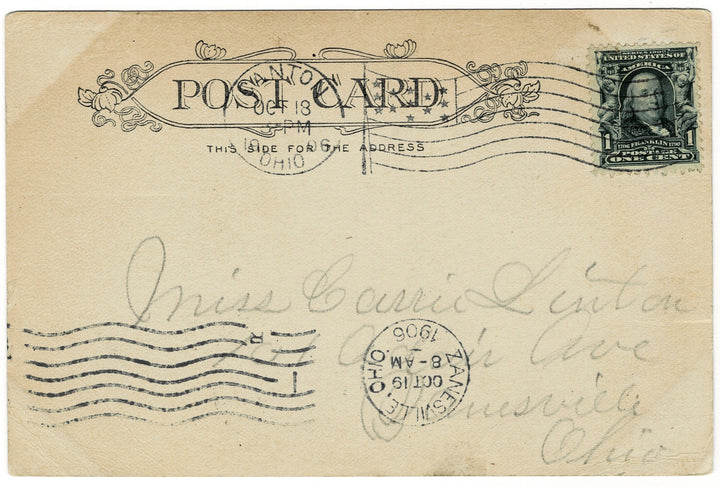 POST CARD
CANTON
OCT 18
PM
1906
OHIO
THIS SIDE FOR THE ADDRESS
SERIES 1902
UNITED STATES OF
AMERICA
1 1
1706 FRANKLIN 1790
POSTAGE
ONE CENT
Miss Carrie Linton
Ave
Zanesville
Ohio
R
ZANESVILLE, OHIO
OCT 19
8-AM
1906